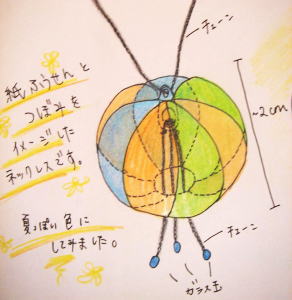 紙ふうせんと
つぼみを
イメージした
ネックレスです。
夏っぽい色に
してみました。
チェーン
~2cm
チェーン
ガラス玉